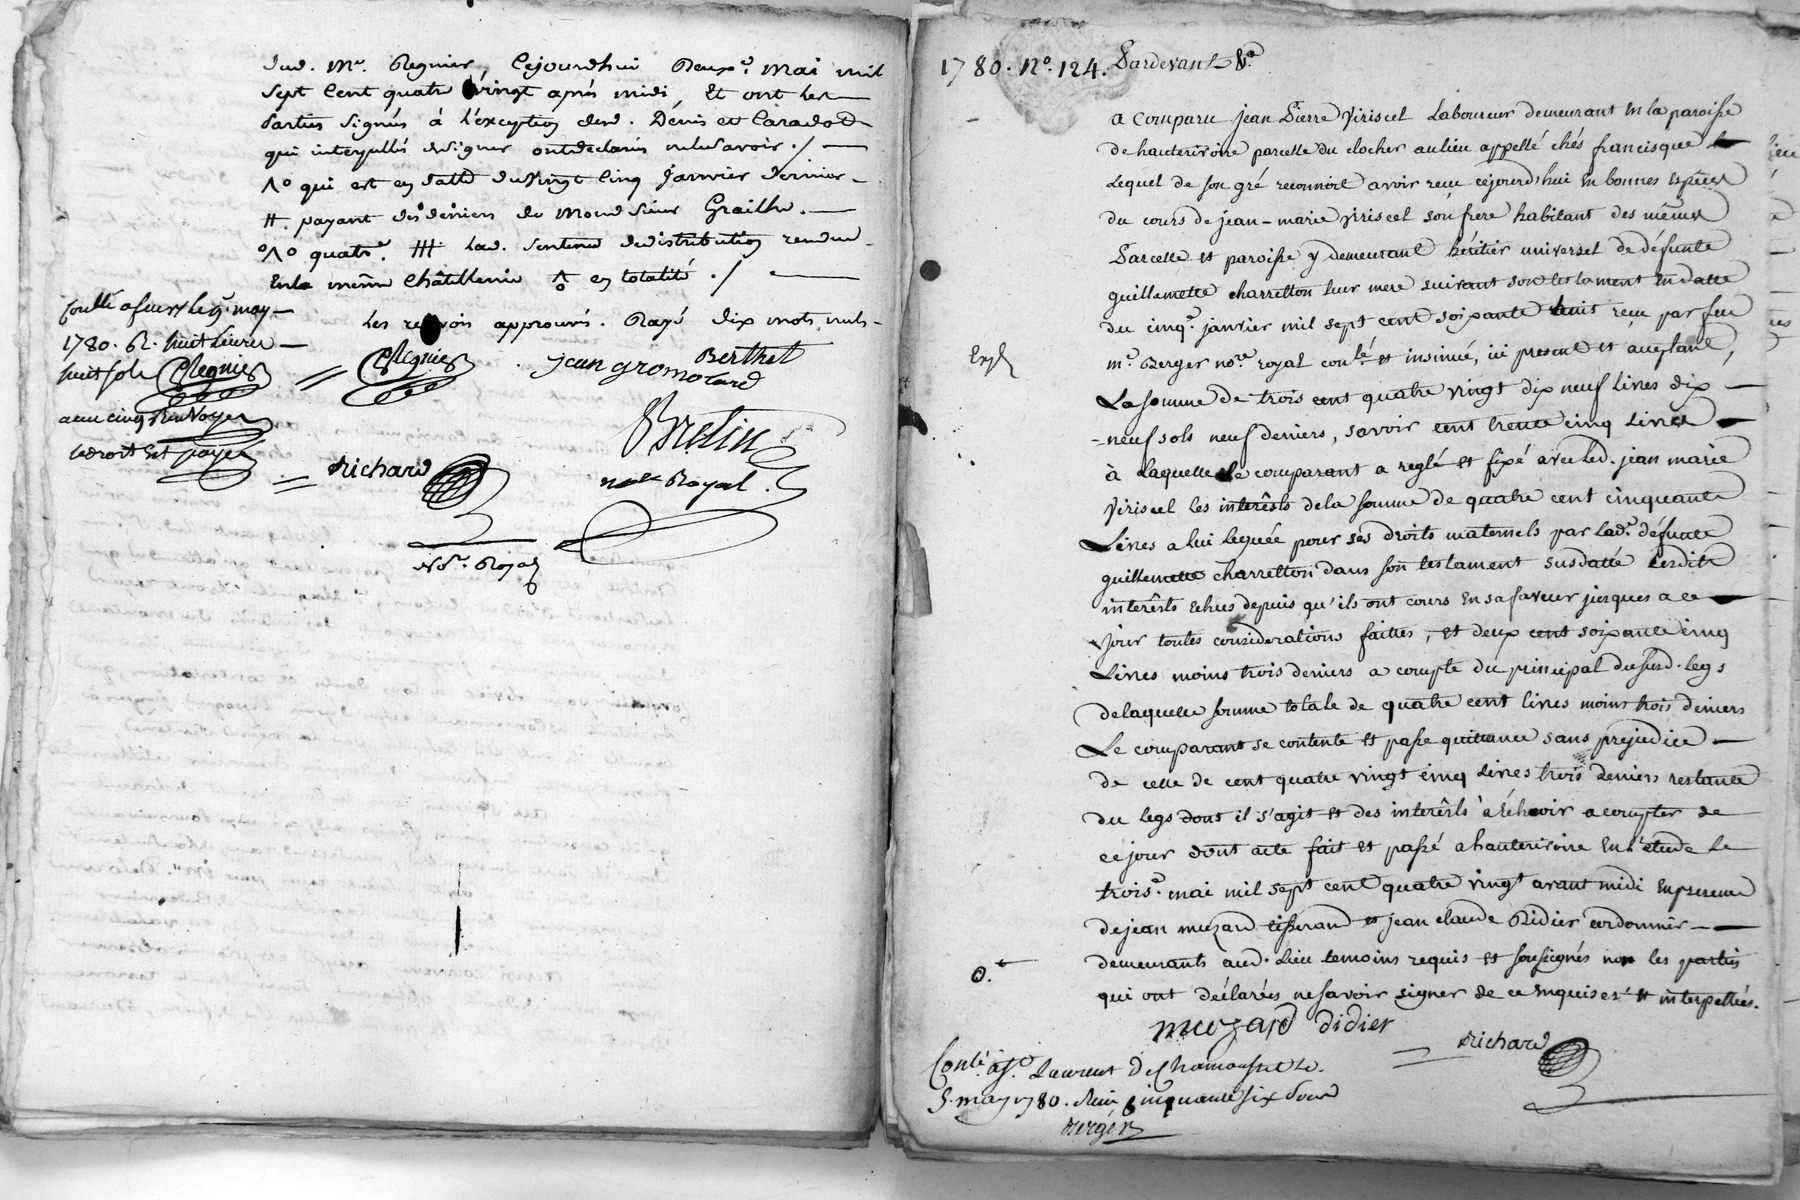 dud. Mr. Regnier, Cejourdhui Deuxe. Mai mil
Sept Cent quatre vingt aprés midi, Et ont les
Parties Signés á L'exception desd. Dénis et Caradot
qui interpellés designer ont declarés nele savoir ./.
qui est en datte du vingt Cinq Janvier dernier
# payant des deniers de Monsieur Grailhe.
quatre. ## lad. Sentence dedistribution rendue
En la même Châtellenie en totalité ./.
Les renvois approuvés. Rayé dix mots nuls
Conllé a feurs le 9 may
1780. R. huit Livres
huit sols Regnier
avec cinq Renvoyes
le droit Est payé
Regnier
Berthet
jean gromolard
Bretin
not. Royal.
Richard
No.re Royal
1780. No. 124. Pardevant &a
a Comparu jean Pierre Viriscel Laboureur demeurant en la paroisse
de hauterivoire parcelle du clocher au lieu appellé chés francisque
Lequel de son gré reconnoit avoir reçu cejourd'hui en bonnes espèces
du cours de jean-marie Viriscel son frere habitant des mêmes
Parcelle et paroisse y demeurant héritier universel de défunte
guillemette charretton leur mere suivant son testament en datte
du cinq.e janvier mil sept cent soixante huit reçu par feu
Expé
m.e Berger no.re royal con.lé et insinué, ici present et acceptant,
La somme de trois cent quatre vingt dix neuf livres dix
-neuf sols neuf deniers, savoir cent trente cinq Livres
à Laquelle le comparant a reglé et fixé avec led. jean marie
Viriscel les interêsts de la somme de quatre cent cinquante
Livres a lui leguée pour sés droits maternels par lad.e défunte
guillemette charretton dans son testament susdatté lesdits
interêsts echus depuis qu'ils ont cours en sa faveur jusques a ce
jour toutes considerations faittes, et deux cent soixante cinq
Livres moins trois deniers a compte du principal du susd. legs
de laquelle somme totale de quatre cent livres moins trois deniers
Le comparant se contente et passe quittance sans prejudice
de celle de cent quatre vingt cinq Livres trois deniers restante
du legs dont il s'agit et des interêsts à échevoir a compter de
ce jour dont acte fait et passé a hauterivoire en l'etude le
trois.e mai mil sept cent quatre vingt avant midi en presence
de jean muzard tisserand et jean claude Didier cordonnier
demeurants aud. Lieu temoins requis et soussignés non les parties
qui ont déclarées ne savoir signer de ce enquises et interpellées.
muzard didier
Richard
Conlé à St. Laurent De Chamousset Le
5. may 1780. Reçu cinquante six sous
Berger